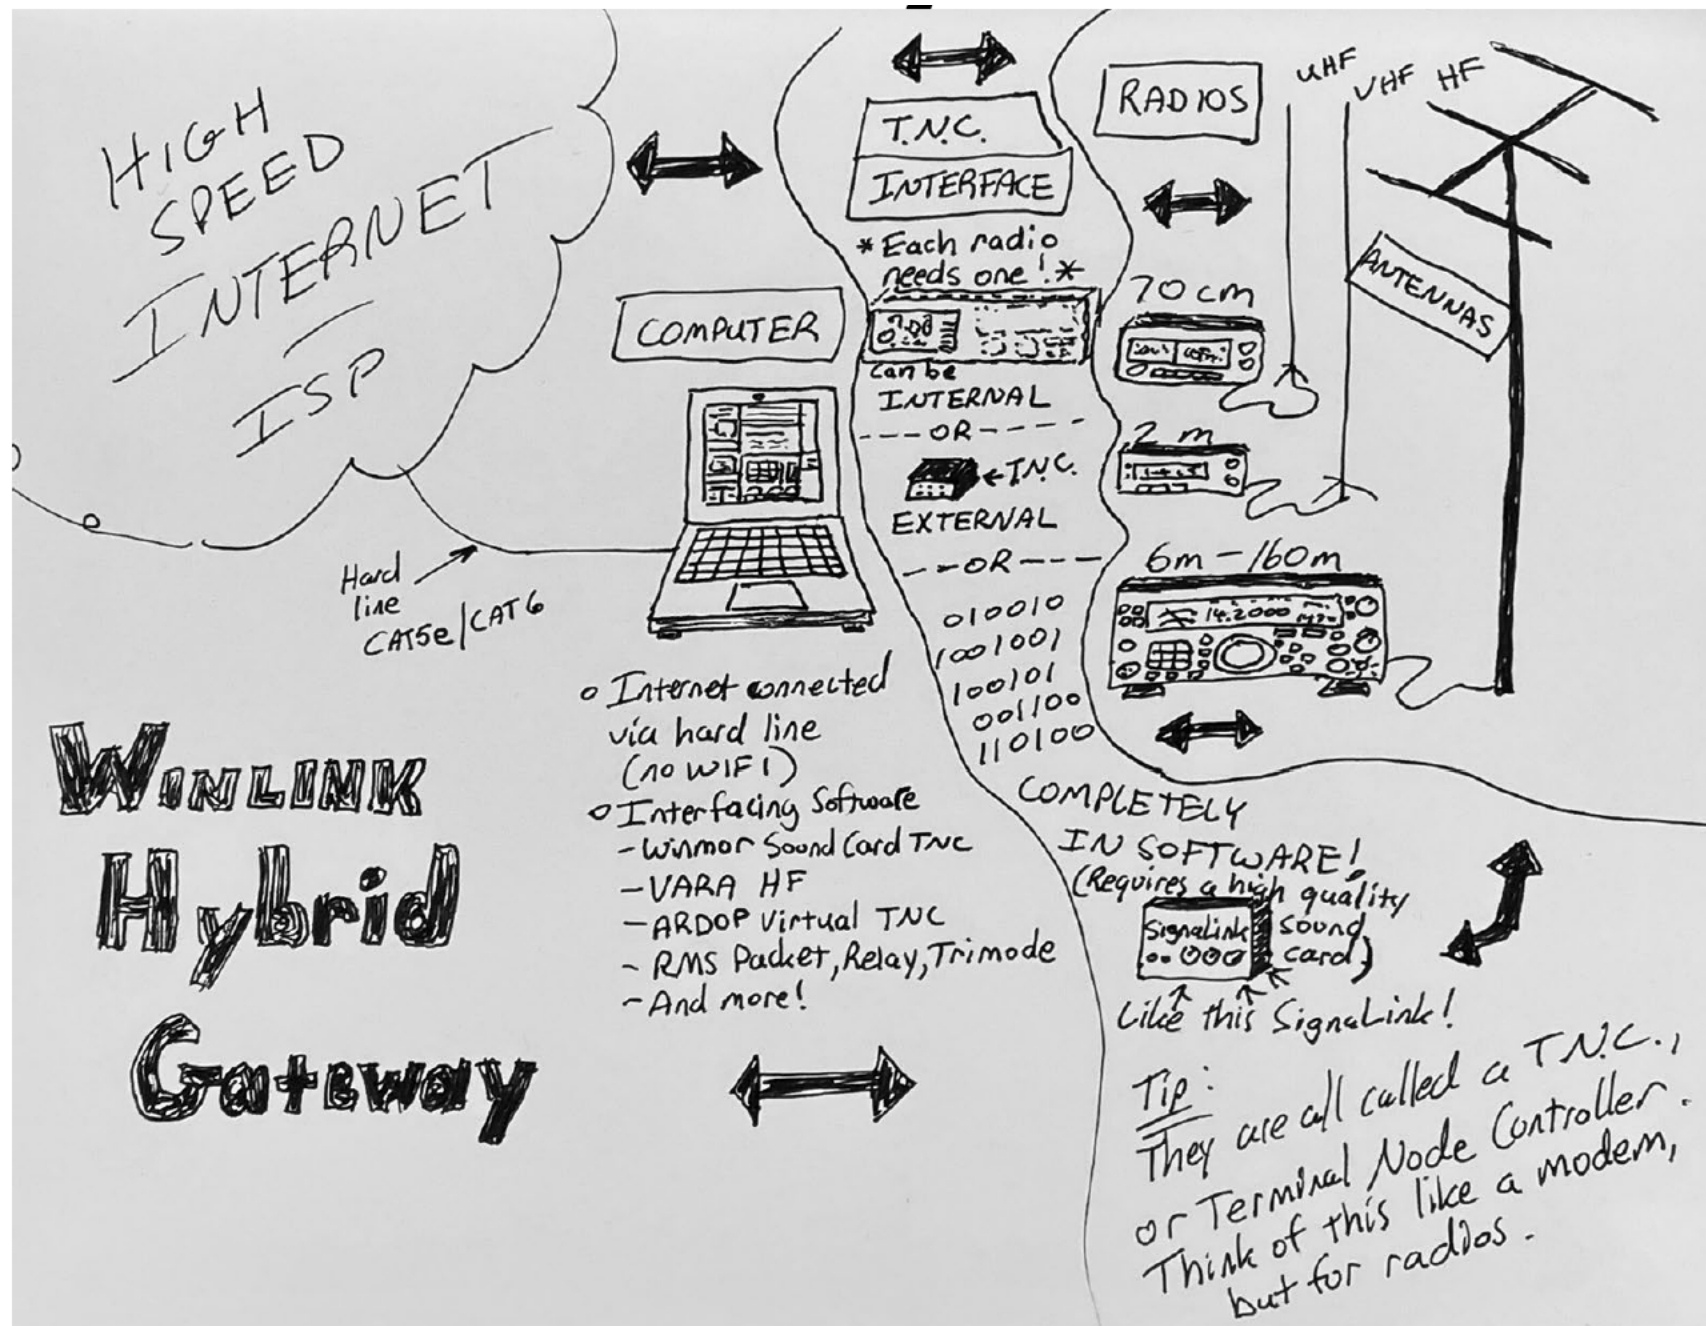 HIGH
SPEED
INTERNET
ISP
Hard
line
CAT5e/CAT6
WINLINK
Hybrid
Gateway
COMPUTER
o Internet connected
via hard line
(no WIFI)
o Interfacing Software
- Winmor Sound Card TNC
- VARA HF
- ARDOP Virtual TNC
- RMS Packet, Relay, Trimode
- And more!
T.N.C.
INTERFACE
* Each radio
needs one! *
can be
INTERNAL
---OR----
←T.N.C.
EXTERNAL
---OR---
010010
1001001
100101
001100
110100
COMPLETELY
IN SOFTWARE!
(Requires a high quality
sound
card)
SignaLink
Like this SignaLink!
Tip:
They are all called a T.N.C.,
or Terminal Node Controller.
Think of this like a modem,
but for radios.
RADIOS
UHF
VHF
HF
ANTENNAS
70cm
2m
6m-160m
14.2000